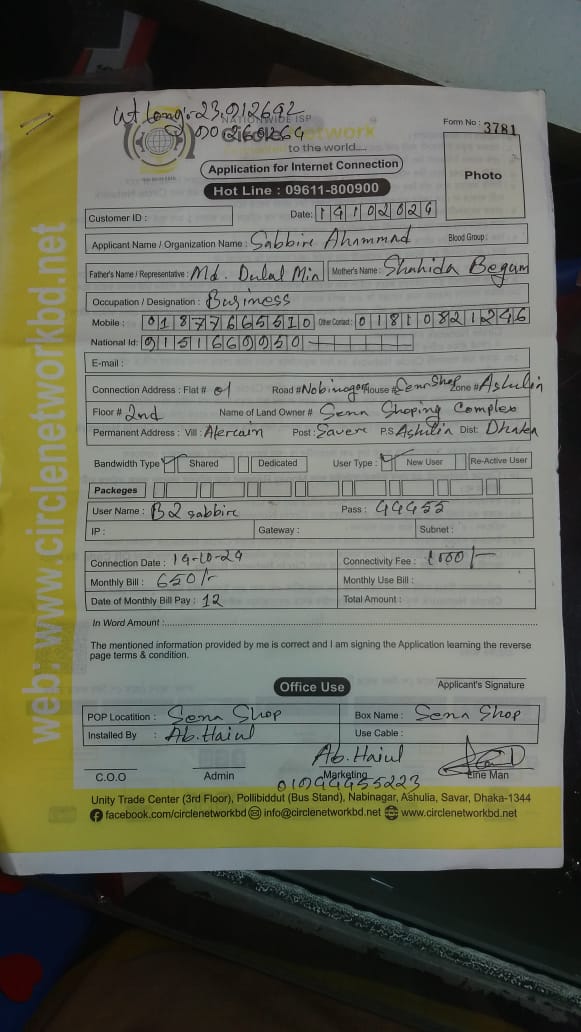 Lat Long:-23.912692
90.269264
NATIONWIDE ISP
Circle Network
to the world....
Form No : 3781
Photo
Application for Internet Connection
Hot Line : 09611-800900
Customer ID :
Date: 14102024
Applicant Name / Organization Name : Sabbire Ahammad Blood Group :
Father's Name / Representative : Md. Dulal Mia Mother's Name : Shahida Begum
Occupation / Designation : Business
Mobile : 01877665510 Other Contact : 01810821246
National Id: 9151660950
E-mail :
Connection Address : Flat # 01 Road # Nobinagor House # Sena Shop Zone # Ashulia
Floor # 2nd Name of Land Owner # Sena Shoping Complex
Permanent Address : Vill : Post : Savere P.S Ashulia Dist: Dhaka
Bandwidth Type Shared Dedicated User Type : New User Re-Active User
Packeges
User Name : B2sabbire Pass : 44455
IP : Gateway : Subnet :
Connection Date : 14-10-24 Connectivity Fee : 1000/-
Monthly Bill : 650/- Monthly Use Bill :
Date of Monthly Bill Pay : 12 Total Amount :
In Word Amount :
The mentioned information provided by me is correct and I am signing the Application learning the reverse
page terms & condition.
Office Use
Applicant's Signature
POP Locatition : Sena Shop Box Name : Sena Shop
Installed By : Ab. Haiul Use Cable :
Ab. Haiul
C.O.O Admin Marketing Line Man
Unity Trade Center (3rd Floor), Pollibiddut (Bus Stand), Nabinagar, Ashulia, Savar, Dhaka-1344
facebook.com/circlenetworkbd info@circlenetworkbd.net www.circlenetworkbd.net
web: www.circlenetworkbd.net